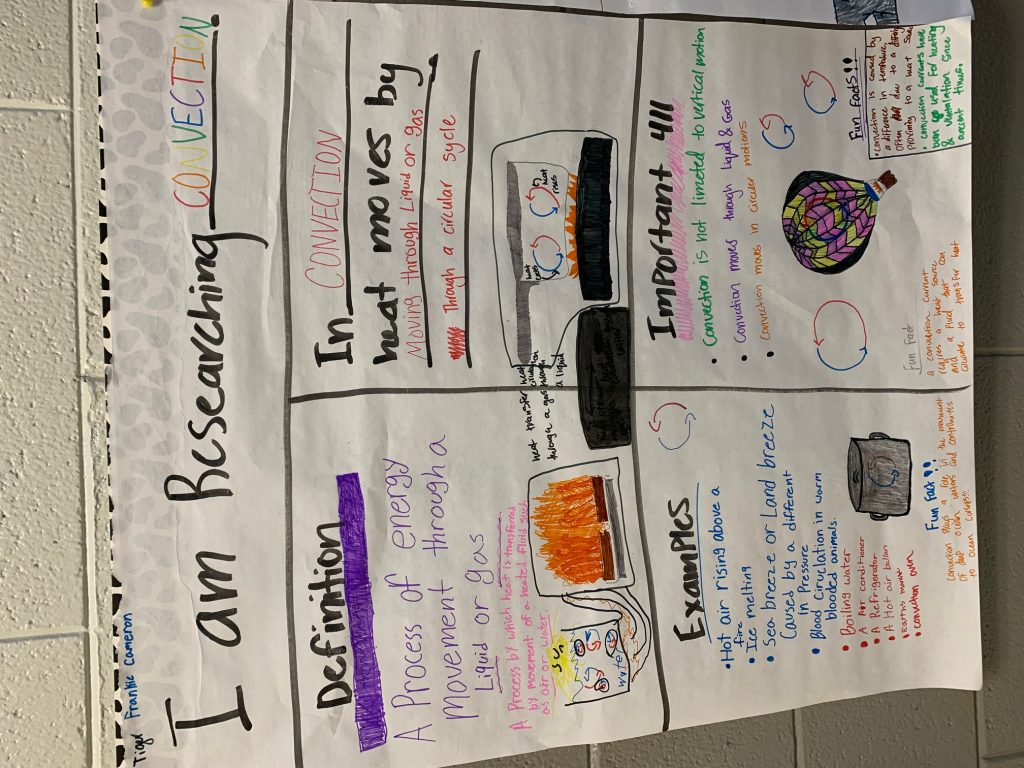 Tigel Frankie Cameron
I am Researching CONVECTION.
Definition
A Process of energy
Movement through a
Liquid or gas
A Process by which heat is transferred
by movement of a heated fluid such
as air or water
Sun
water
heat transfer
through a gas
heat
through
a liquid
In CONVECTION
heat moves by
Moving through Liquid or gas.
Through a circular sycle
heat
rises
Examples
• Hot air rising above a
fire
• Ice melting
• Sea breeze or Land breeze
Caused by a different
in Pressure
• Blood Cirulation in warm
blooded animals.
• Boiling water
• A Air conditioner
• A Refrigerator
• A Hot air ballon
• Earths mantle
• convection oven
Fun Fact!!
Convection plays a role in the movement
of deep ocean waters and contributes
to ocean currents.
Important
• Convection is not limeted to vertical motion
• Convection moves through Liquid & Gas
• Convection moves in Circular motions
Fun Fact
a convection current
requires a heat source
and a fluid that can
circulate to transfer heat
Fun Facts!!
• Convection is caused by
a diference in
often due to a
proximity to a heat
• convection currents have
been used for heating
& ventilation since
ancient times.